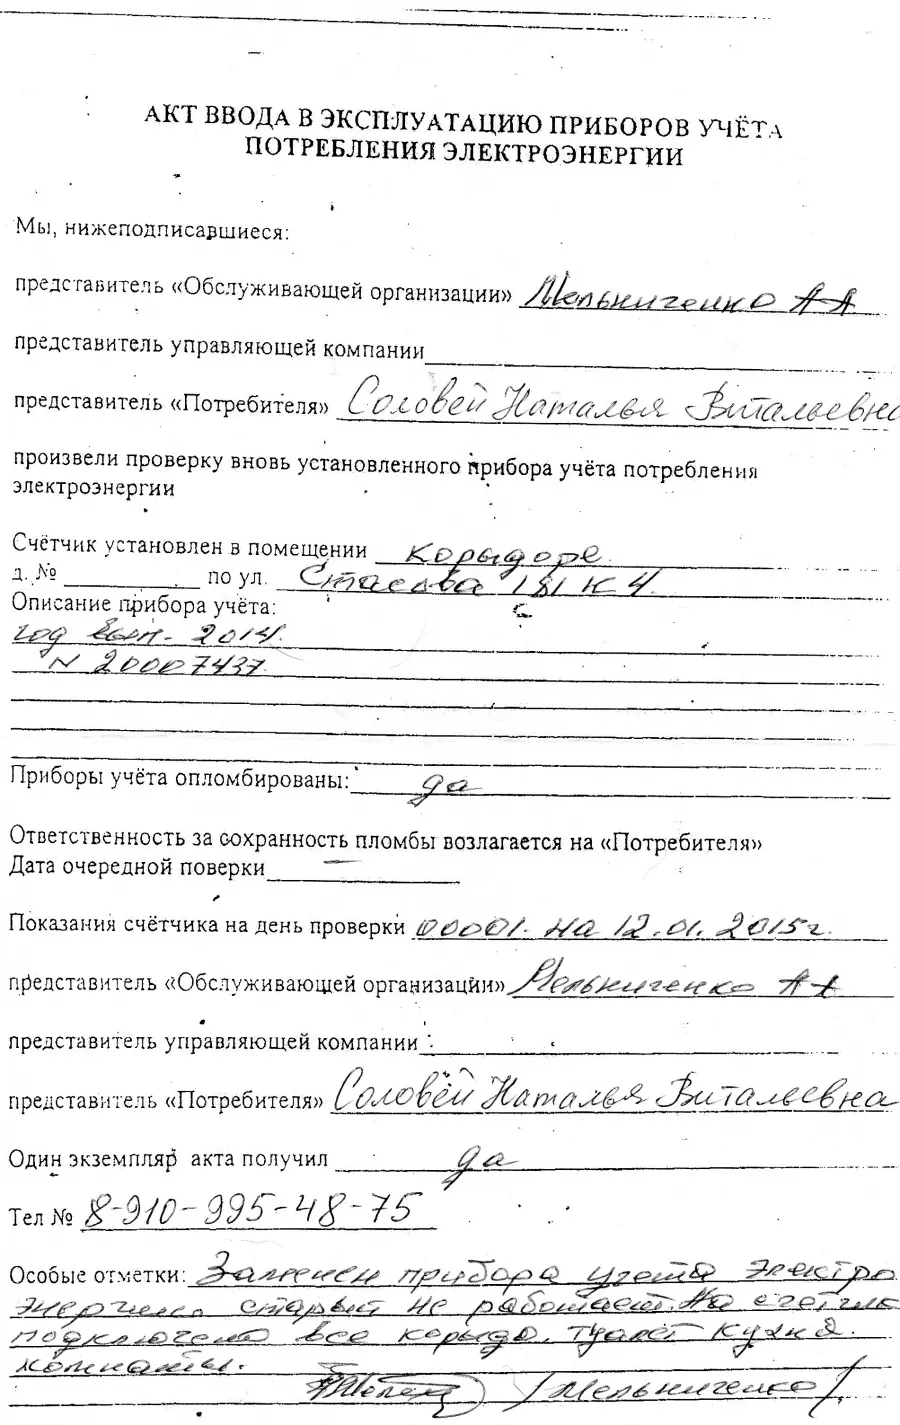 АКТ ВВОДА В ЭКСПЛУАТАЦИЮ ПРИБОРОВ УЧЁТА
ПОТРЕБЛЕНИЯ ЭЛЕКТРОЭНЕРГИИ
Мы, нижеподписавшиеся:
представитель «Обслуживающей организации» Мельниченко А А
представитель управляющей компании
представитель «Потребителя» Соловей Наталья Витальевна
произвели проверку вновь установленного прибора учёта потребления
электроэнергии
Счётчик установлен в помещении корыдоре
д. № по ул. Стасова 181 к 4.
Описание прибора учёта:
год вып- 2014.
N 20007437
Приборы учёта опломбированы: да
Ответственность за сохранность пломбы возлагается на «Потребителя»
Дата очередной поверки —
Показания счётчика на день проверки 00001. на 12.01.2015г.
представитель «Обслуживающей организации» Мельниченко А А
представитель управляющей компании
представитель «Потребителя» Соловей Наталья Витальевна
Один экземпляр акта получил да
Тел № 8-910-995-48-75
Особые отметки: Заменен прибора учета электро
энергию старый не работает. На счетчик
подключено все корыдо. туалет кухня.
комнаты.
/Мельниченко/